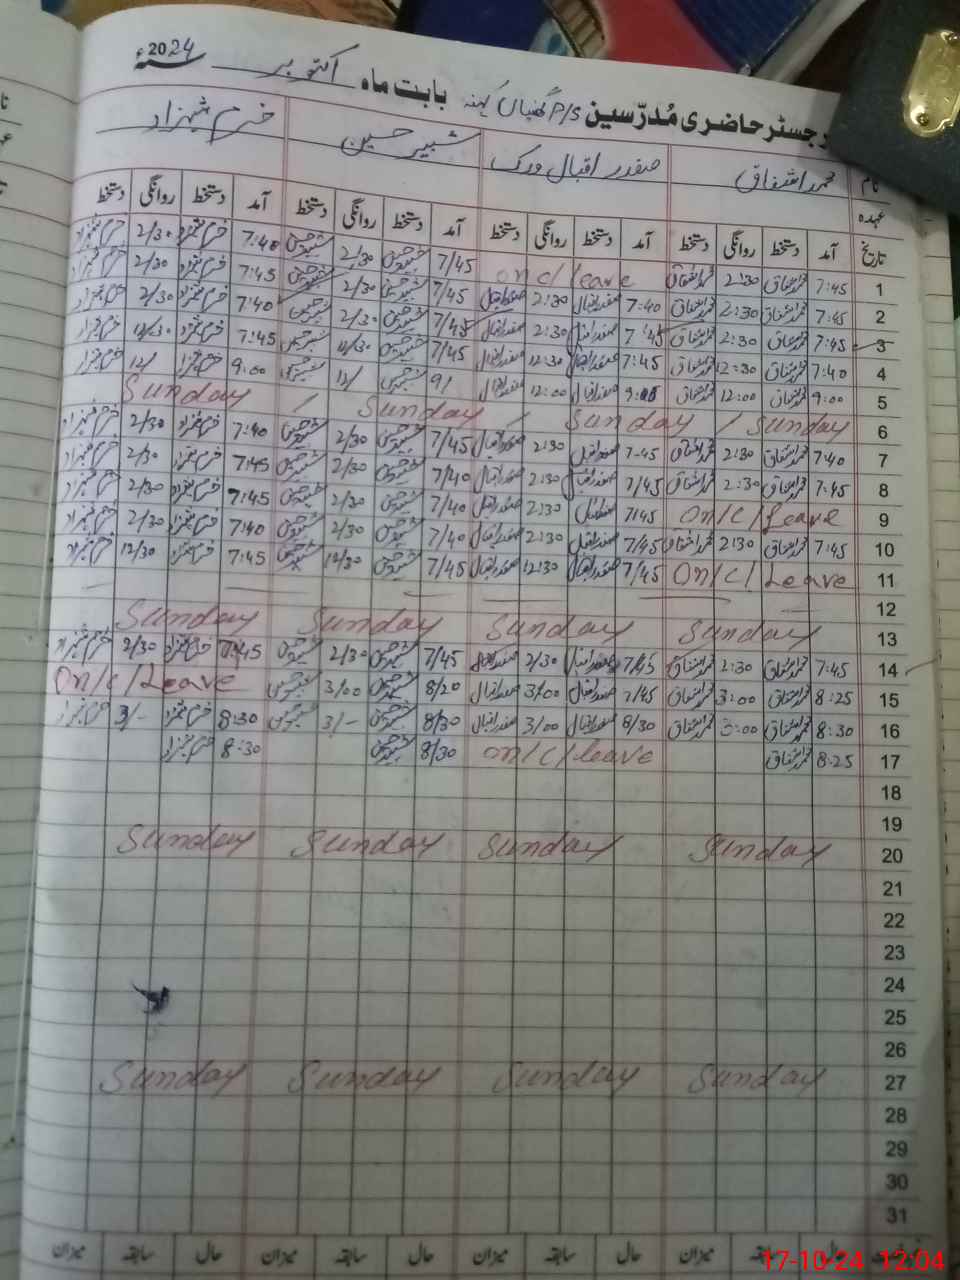 رجسٹر حاضری مُدرّسین P/S گھنیاں کہنہ بابت ماہ اکتوبر 2024ء
نام محمد اشفاق صفدر اقبال ورک شبیر حسین خرم شہزاد
عہدہ
تاریخ آمد دستخط روانگی دستخط آمد دستخط روانگی دستخط آمد دستخط روانگی دستخط آمد دستخط روانگی دستخط
1 7:45 محمد اشفاق 2:30 محمد اشفاق on c/ leave 7/45 شبیر حسین 2/30 شبیر حسین 7:40 خرم شہزاد 2/30 خرم شہزاد
2 7:45 محمد اشفاق 2:30 محمد اشفاق 7:40 صفدر اقبال 2:30 صفدر اقبال 7/45 شبیر حسین 2/30 شبیر حسین 7:45 خرم شہزاد 2/30 خرم شہزاد
3 7:45 محمد اشفاق 2:30 محمد اشفاق 7:45 صفدر اقبال 2:30 صفدر اقبال 7/45 شبیر حسین 2/30 شبیر حسین 7:40 خرم شہزاد 2/30 خرم شہزاد
4 7:40 محمد اشفاق 12:30 محمد اشفاق 7:45 صفدر اقبال 12:30 صفدر اقبال 7/45 شبیر حسین 12/30 شبیر حسین 7:45 خرم شہزاد 12/30 خرم شہزاد
5 9:00 محمد اشفاق 12:00 محمد اشفاق 9:05 صفدر اقبال 12:00 صفدر اقبال 9/ شبیر حسین 12/ شبیر حسین 9:00 خرم شہزاد 12/ خرم شہزاد
6 Sunday / Sunday / Sunday / Sunday
7 7:40 محمد اشفاق 2:30 محمد اشفاق 7:45 صفدر اقبال 2:30 صفدر اقبال 7/45 شبیر حسین 2/30 شبیر حسین 7:40 خرم شہزاد 2/30 خرم شہزاد
8 7:45 محمد اشفاق 2:30 محمد اشفاق 7/45 صفدر اقبال 2:30 صفدر اقبال 7/40 شبیر حسین 2/30 شبیر حسین 7:45 خرم شہزاد 2/30 خرم شہزاد
9 On/C/Leave 7/45 صفدر اقبال 2:30 صفدر اقبال 7/40 شبیر حسین 2/30 شبیر حسین 7:45 خرم شہزاد 2/30 خرم شہزاد
10 7:45 محمد اشفاق 2:30 محمد اشفاق 7/45 صفدر اقبال 2:30 صفدر اقبال 7/40 شبیر حسین 2/30 شبیر حسین 7:40 خرم شہزاد 2/30 خرم شہزاد
11 On/C/Leave 7/45 صفدر اقبال 12:30 صفدر اقبال 7/45 شبیر حسین 12/30 شبیر حسین 7:45 خرم شہزاد 12/30 خرم شہزاد
12
13 Sunday Sunday Sunday Sunday
14 7:45 محمد اشفاق 2:30 محمد اشفاق 7/45 صفدر اقبال 2/30 صفدر اقبال 7/45 شبیر حسین 2/30 شبیر حسین 7:45 خرم شہزاد 2/30 خرم شہزاد
15 8:25 محمد اشفاق 3:00 محمد اشفاق 7/45 صفدر اقبال 3/00 صفدر اقبال 8/20 شبیر حسین 3/00 شبیر حسین On/C/Leave
16 8:30 محمد اشفاق 3:00 محمد اشفاق 8/30 صفدر اقبال 3/00 صفدر اقبال 8/30 شبیر حسین 3/- شبیر حسین 8:30 خرم شہزاد 3/- خرم شہزاد
17 8:25 محمد اشفاق on/c/leave 8/30 شبیر حسین 8:30 خرم شہزاد
18
19
20 Sunday Sunday Sunday Sunday
21
22
23
24
25
26
27 Sunday Sunday Sunday Sunday
28
29
30
31
حال سابقہ میزان حال سابقہ میزان حال سابقہ میزان
17-10-24 12:04